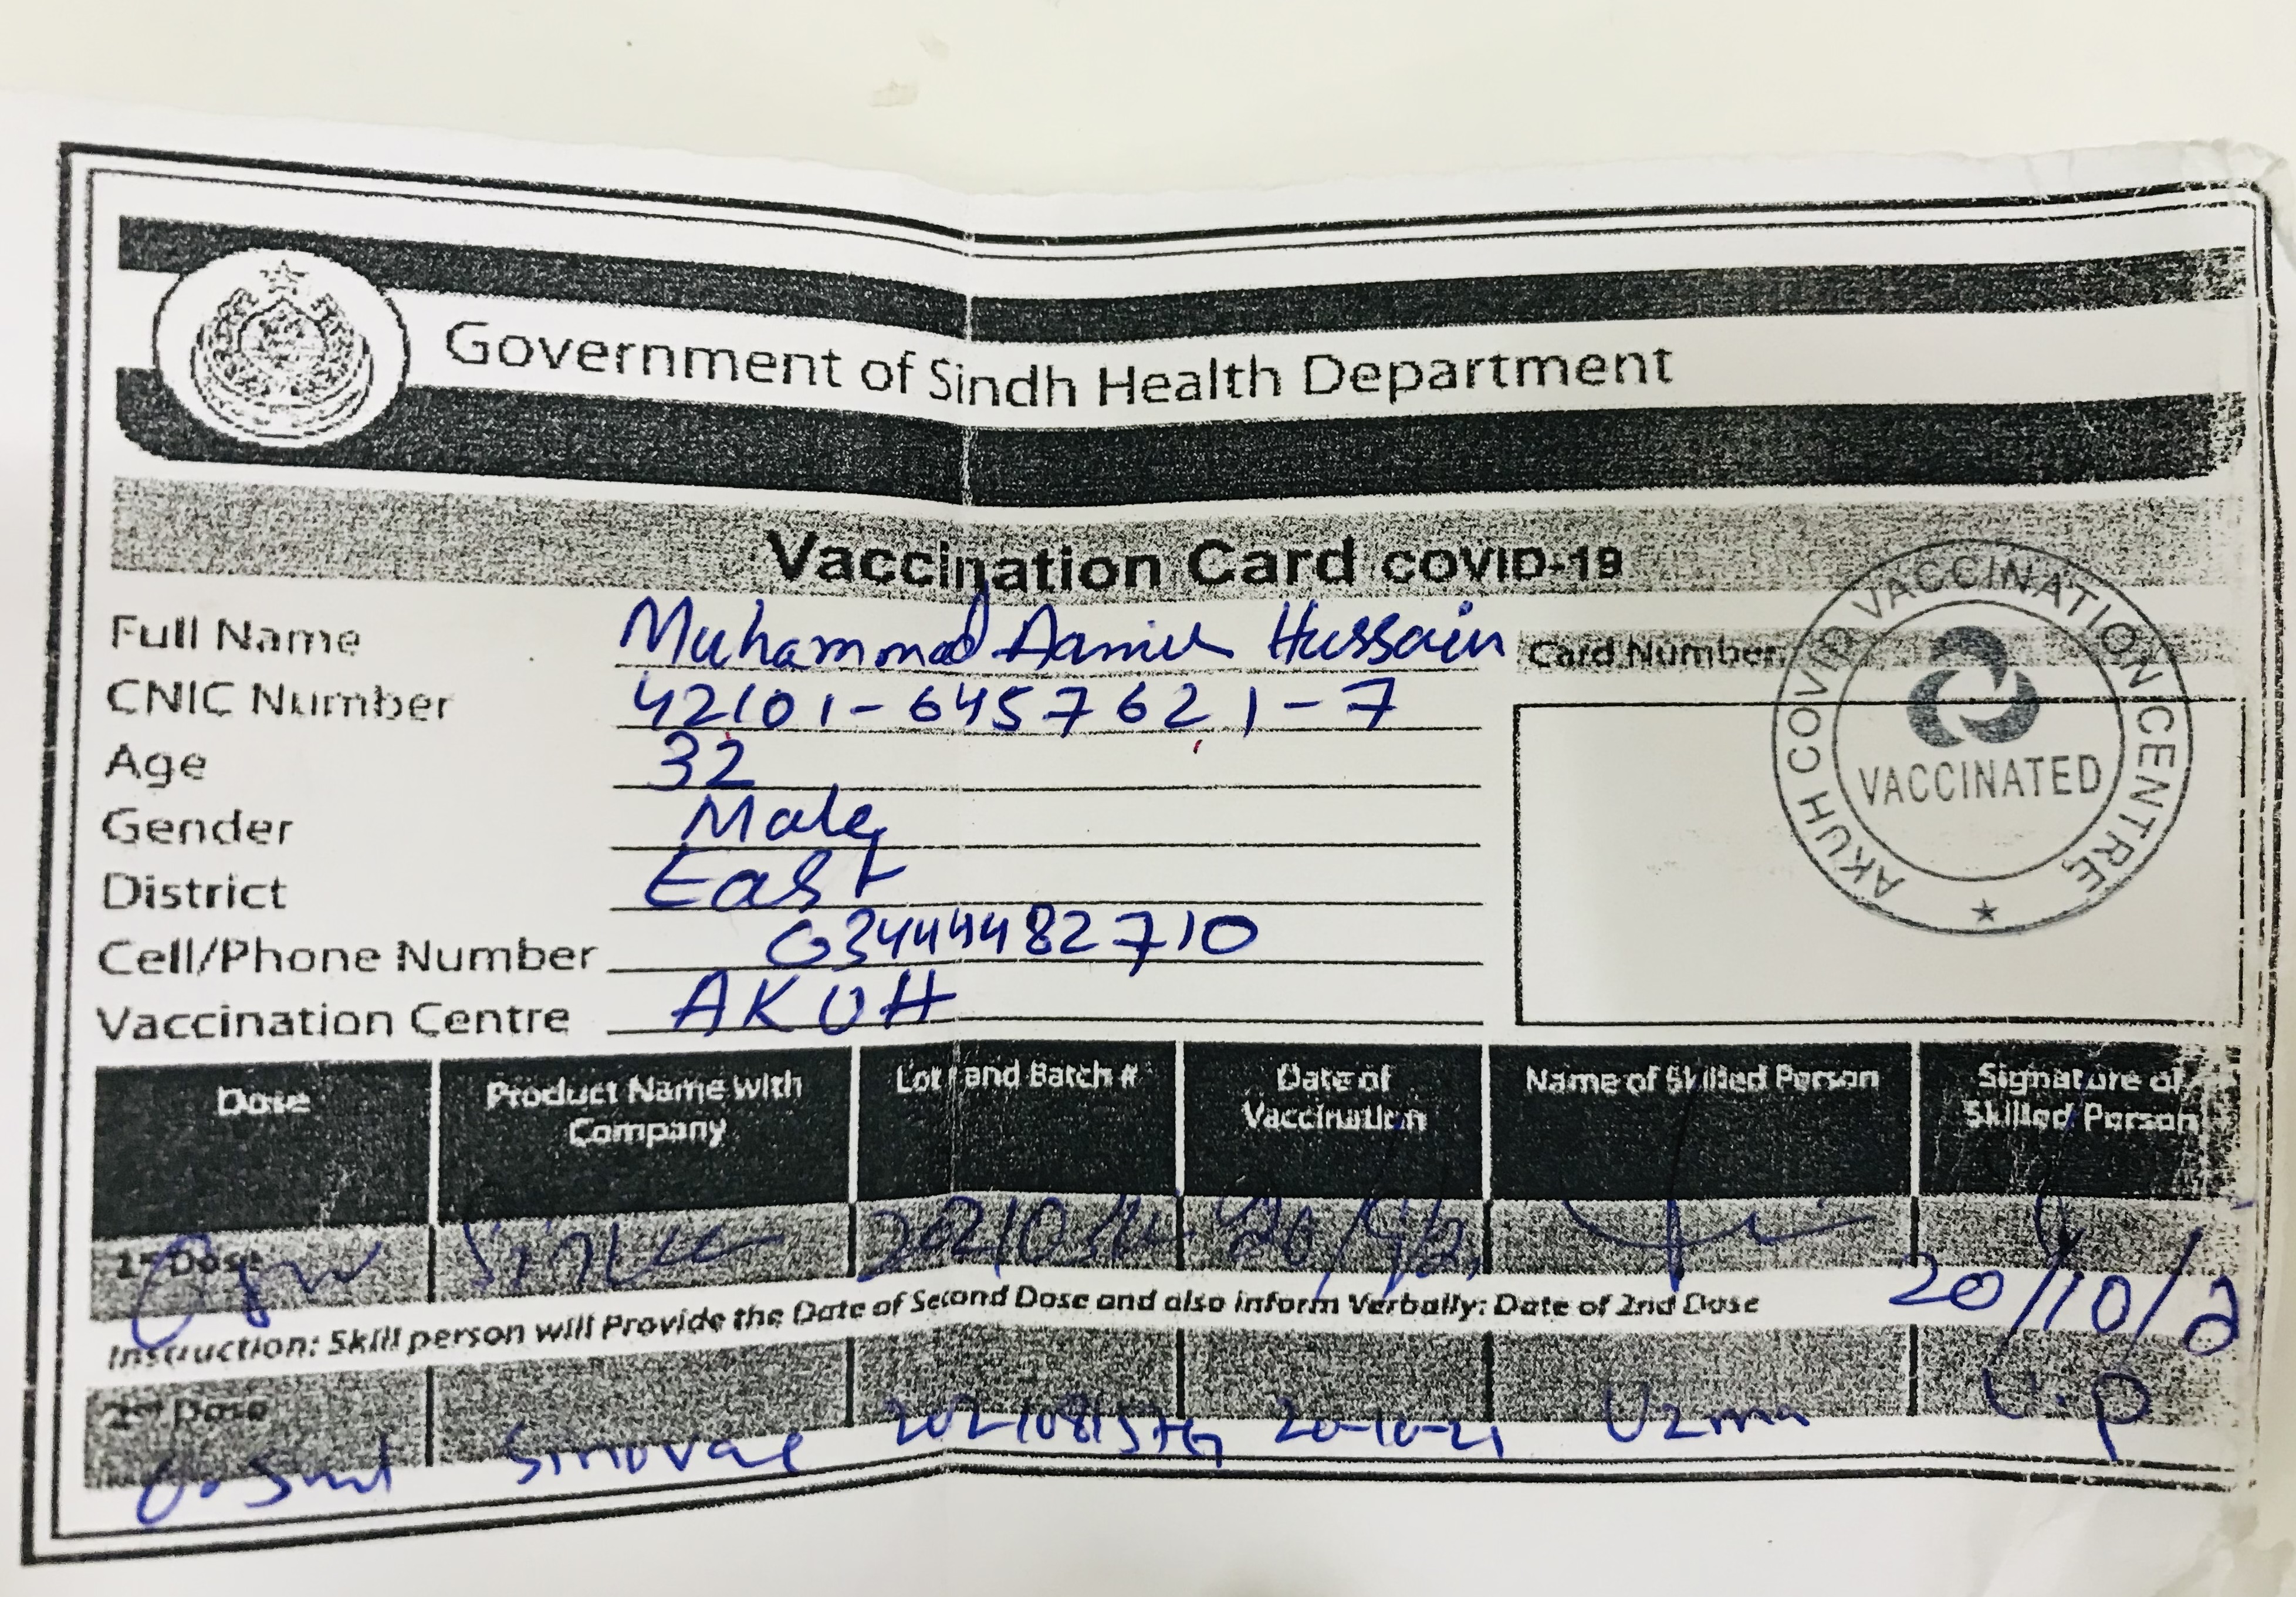 Government of Sindh Health Department
Vaccination Card COVID-19
Full Name Muhammad Aamir Hussain
Card Number
CNIC Number 42101-6457621-7
Age 32
Gender Male
District East
Cell/Phone Number 03444482710
Vaccination Centre AKUH
AKUH COVID VACCINATION CENTRE
VACCINATED
Dose Product Name with Company Lot and Batch # Date of Vaccination Name of Skilled Person Signature of Skilled Person
1st Dose
Instruction: Skill person will Provide the Date of Second Dose and also inform Verbally: Date of 2nd Dose 20/10/2
2nd Dose
0.5ml Sinovac 20-10-21 Uzma